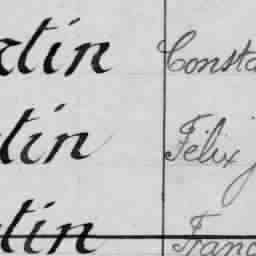 tin Consta
tin Félix J
tin Franc